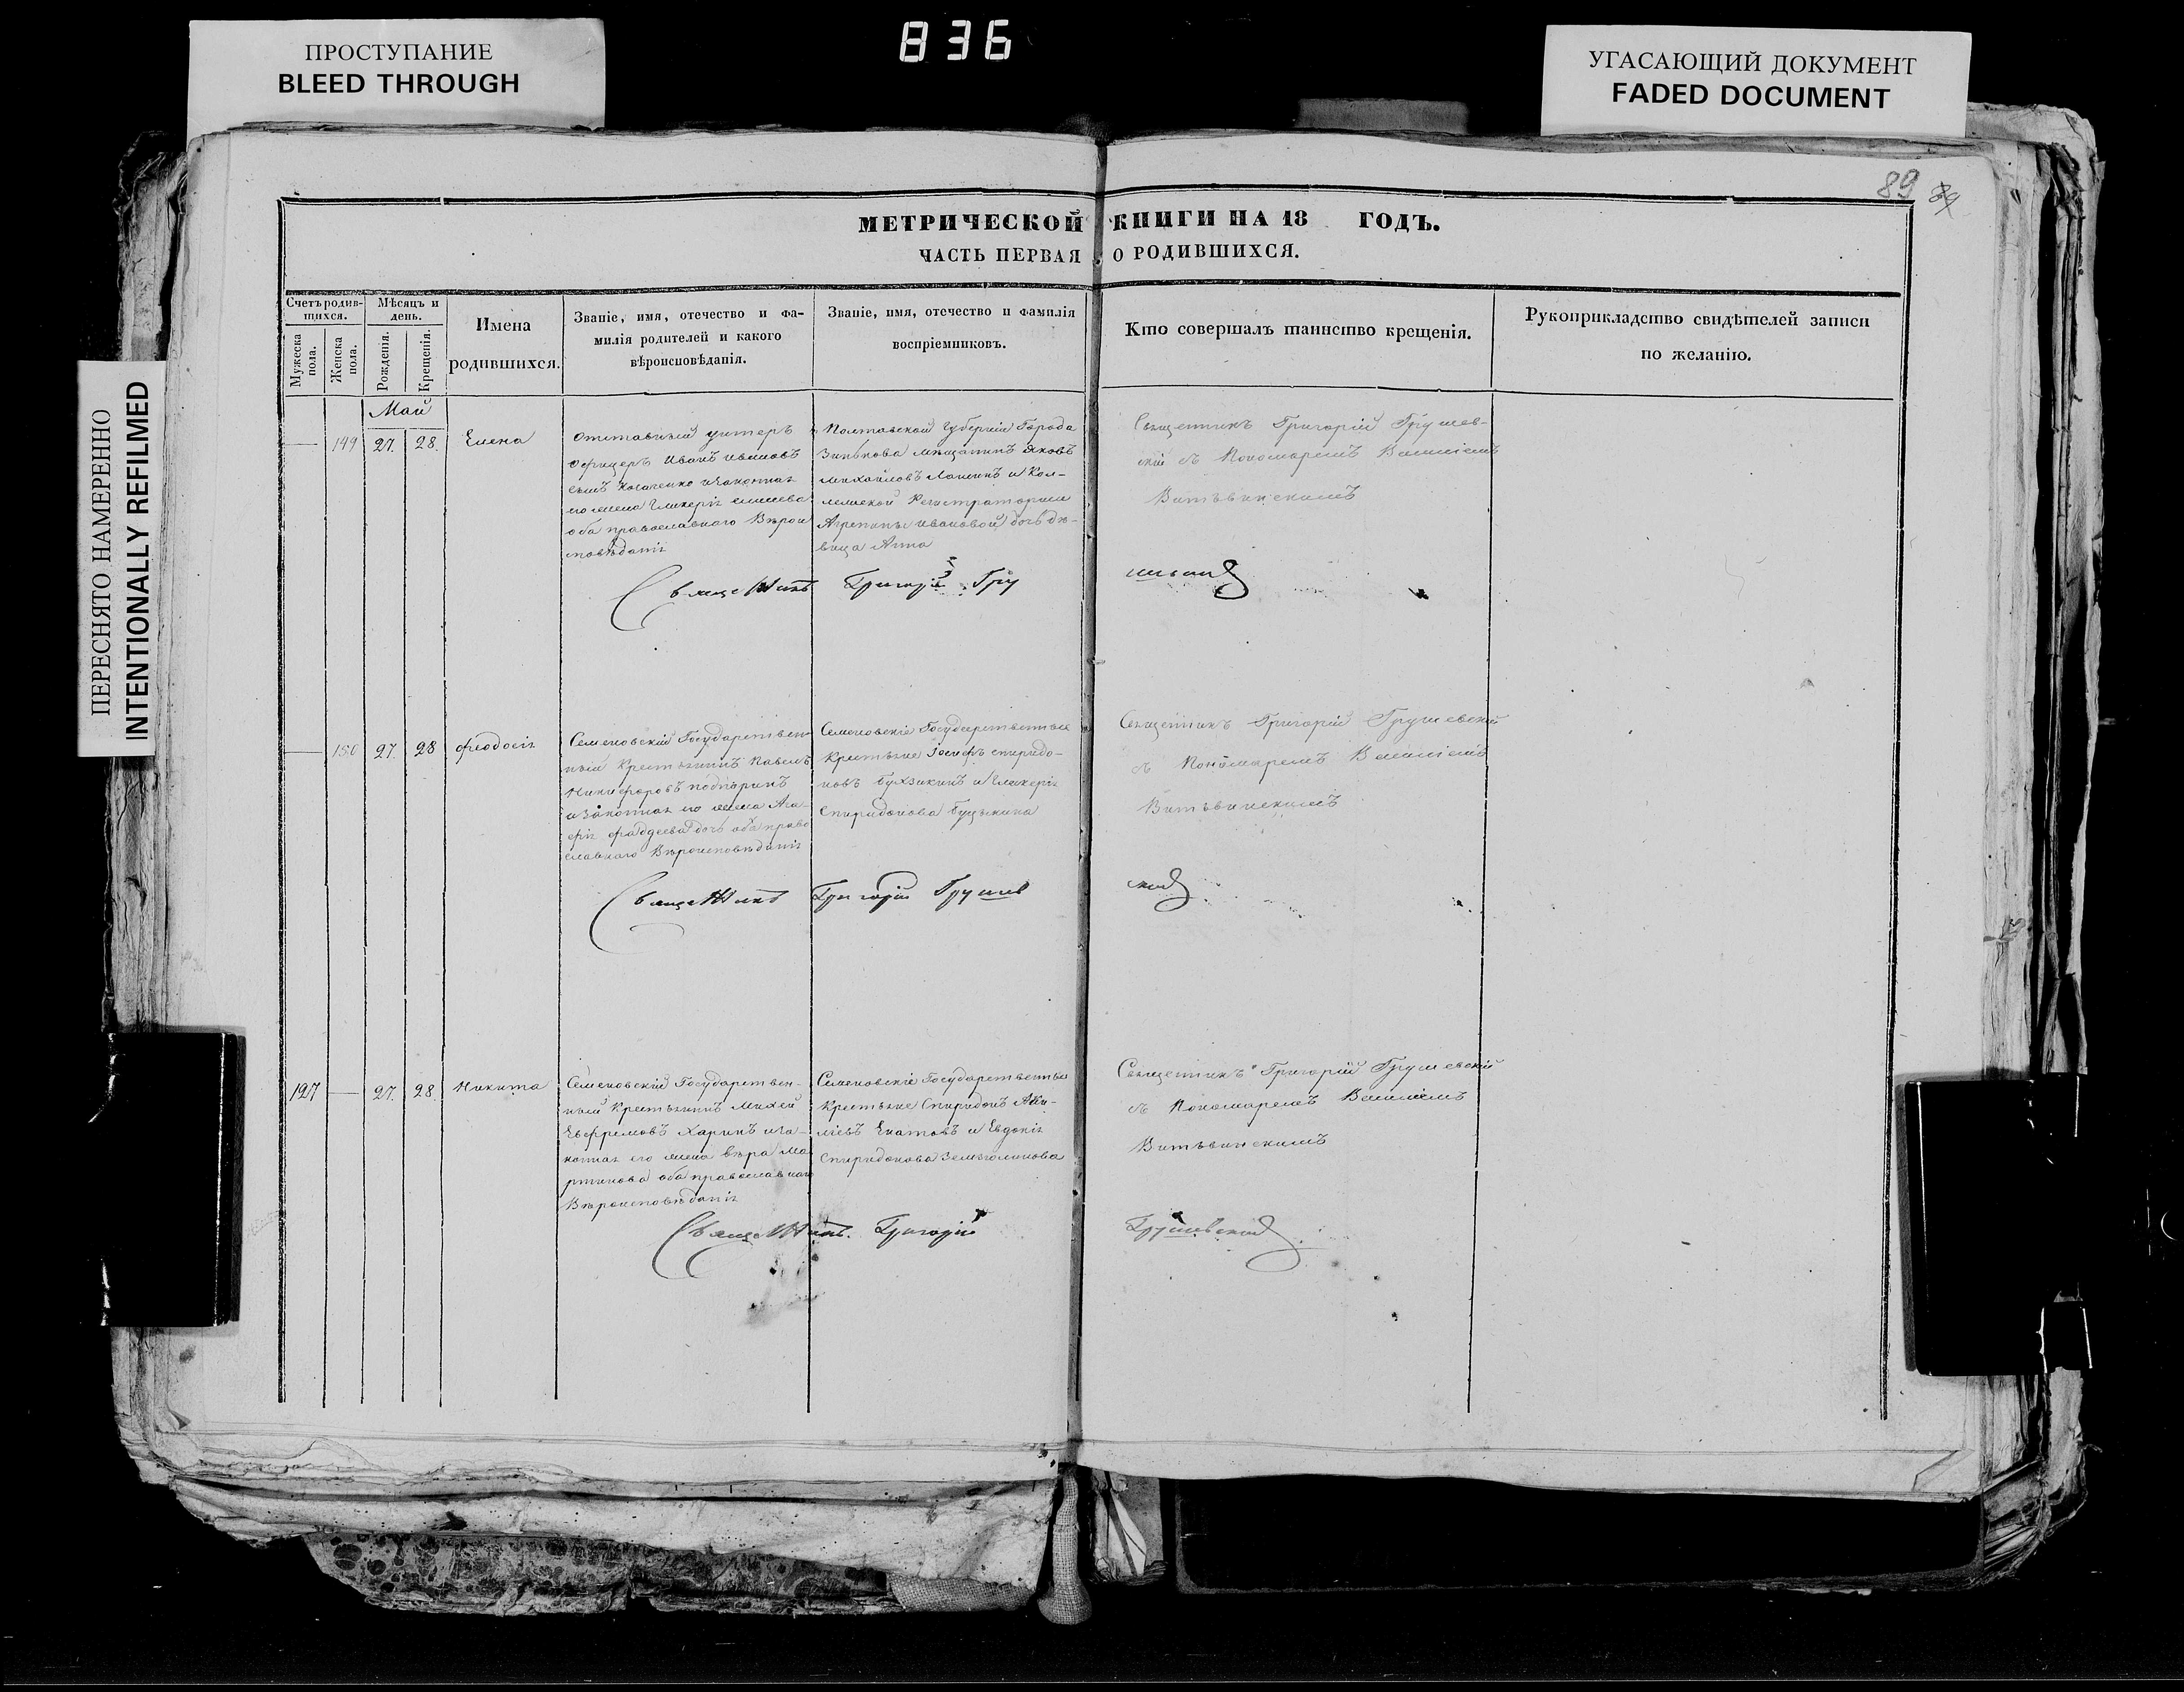 836
ПРОСТУПАНИЕ
BLEED THROUGH
УГАСАЮЩИЙ ДОКУМЕНТ
FADED DOCUMENT
ПЕРЕСНЯТО НАМЕРЕННО
INTENTIONALLY REFILMED
89
МЕТРИЧЕСКОЙ КНИГИ НА 18 ГОДЪ.
ЧАСТЬ ПЕРВАЯ О РОДИВШИХСЯ.
Счетъ родив-
шихся.
Мужеска
пола.
Женска
пола.
Мѣсяцъ и
день.
Рожденія.
Крещенія.
Имена
родившихся.
Званіе, имя, отечество и фа-
милія родителей и какого
вѣроисповѣданія.
Званіе, имя, отечество и фамилія
воспріемниковъ.
Кто совершалъ таинство крещенія.
Рукоприкладство свидѣтелей записи
по желанію.
Май
149 27. 28. Елена
Отставный унтеръ
Офицеръ Иванъ Ивановъ
сынъ и законная
его жена Гликерія
оба православнаго Вѣрои
сповѣданія
Полтавской Губерніи Города
Зинькова мѣщанинъ Яковъ
Михайловъ и Кол-
лежской Регистраторши
Агрепины Ивановой дочь дѣ-
вица Анна
Священникъ Григорій Грушев-
скій съ Пономаремъ Василіемъ
Витввинскимъ
Священникъ Григорій Гру
шевскій
150 27. 28 Феодосія
Семеновскій Государствен
ный Крестьянинъ Павелъ
Никифоровъ
и законная его жена Ага-
фія Фаддеева дочь оба право
славнаго Вѣроисповѣданія
Семеновскіе Государственные
Крестьяне Іосифъ Спиридо-
новъ и Гликерія
Спиридонова
Священникъ Григорій Грушевскій
съ Пономаремъ Василіемъ
Витввинскимъ
Священникъ Григорій Грушев
скій
127 27. 28. Никита
Семеновскій Государствен-
ный Крестьянинъ Михей
Евфремовъ Харинъ и за-
конная его жена Вѣра Ма
ртинова оба православнаго
Вѣроисповѣданія
Семеновскіе Государственные
Крестьяне Спиридонъ Аки-
ліевъ и Евдокія
Спиридонова
Священникъ Григорій Грушевскій
съ Пономаремъ Василіемъ
Витввинскимъ
Священникъ Григорій
Грушевскій